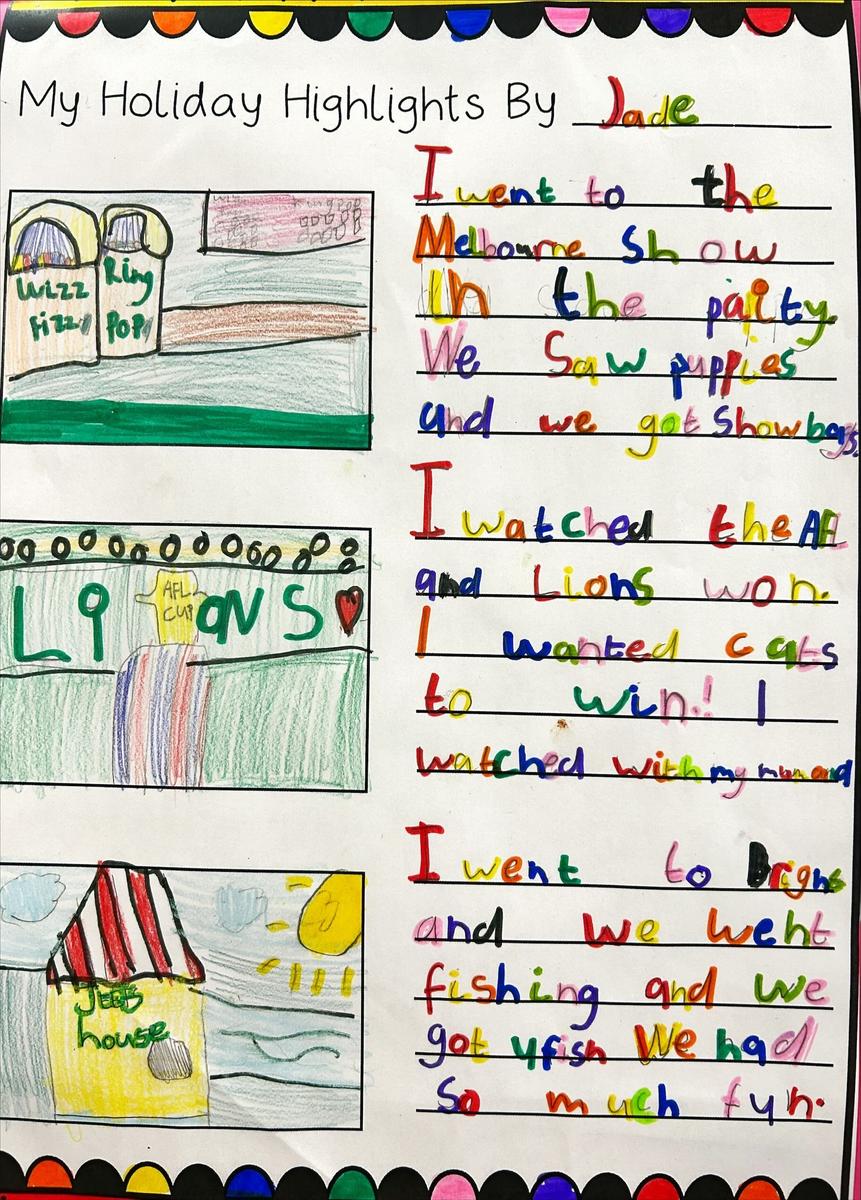 My Holiday Highlights By Jade
I went to the
Melbourne Show
in the paity.
We Saw puppies
and we got Showbags.
Wizz
Fizz
Ring
Pop
I watched the AFL
and Lions won.
I wanted cats
to win! I
watched with my mum and
LIONS
AFL
CUP
I went to Brighs
and we went
fishing and we
got 4fish We had
So much fun.
JEEB
house